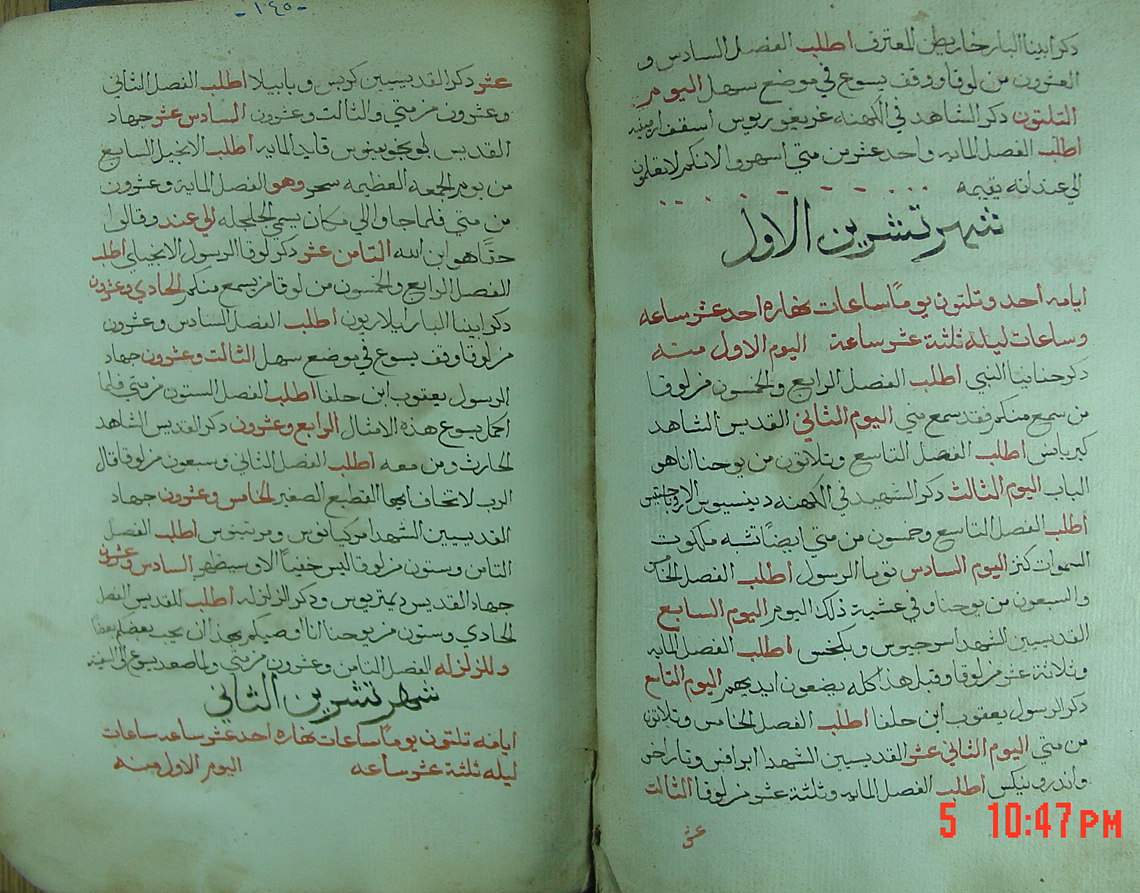 ذكر ابينا البار خاريطن المعترف اطلب الفصل السادس و
العشرون من لوقا ووقف يسوع في موضع سهل اليوم
التلتون ذكر الشاهد في الكهنه غريغوريوس اسقف ارمينيه
اطلب الفصل المايه واحد عشر من متي اسهروا لانكم لا تعلمون
الي عند انه يقيمه
شهر تشرين الاول
ايامه احد وتلتون يوماً ساعات نهاره احد عشر ساعه
وساعات ليله ثلثة عشر ساعة اليوم الاول منه
ذكر حنانيا النبي اطلب الفصل الرابع والخمسون من لوقا
من سمع منكم فقد سمع مني اليوم الثاني القديس الشاهد
كبريانس اطلب الفصل التاسع وتلاتون من يوحنا انا هو
الباب اليوم الثالث ذكر الشهيد في الكهنه ديونيسيوس
اطلب الفصل التاسع وخمسون من متي ايضاً تشبه ملكوت
السموات كنز اليوم السادس توما الرسول اطلب الفصل الخامس
والسبعون من يوحنا وفي عشية ذلك اليوم اليوم السابع
القديسين الشهدا سرجيوس وبكخس اطلب الفصل المايه
وثلاثة عشر من لوقا وقبل هذا كله يضعون ايديهم اليوم التاسع
ذكر الرسول يعقوب ابن حلفا اطلب الفصل الخامس وتلاتون
من متي اليوم الثاني عشر القديسين الشهدا ابروافس وتارخس
واندرونيكس اطلب الفصل المايه وثلثة عشر من لوقا الثالث
عشر
5 10:47 PM
-١٤٥-
عشر ذكر القديسين كربس وبابيلا اطلب الفصل الثاني
وعشرون من متي والثالث وعشرون السادس عشر جهاد
القديس لونجينوس قايد المايه اطلب الانجيل السابع
من يوم الجمعه العظيمه سحر وهو الفصل الماية وعشرون
من متي فلما جاوا الي مكان يسمي الجلجله الي عند وقالوا
حقاً هو ابن الله التامن عشر ذكر لوقا الرسول الانجيلي اطلب
الفصل الرابع والخمسون من لوقا من يسمع منكم الحادي وعشرون
ذكر ابينا البار ايلاريون اطلب الفصل السادس وعشرون
من لوقا وقف يسوع في موضع سهل الثالث وعشرون جهاد
الرسول يعقوب ابن حلفا اطلب الفصل الستون من متي فلما
اكمل يسوع هذه الامثال الرابع وعشرون ذكر القديس الشاهد
الحارث ومن معه اطلب الفصل الثاني وسبعون من لوقا قال
الرب لا تخاف ايها القطيع الصغير الخامس وعشرون جهاد
القديسين الشهدا مركيانوس ومرتينوس اطلب الفصل
التامن وستون من لوقا ليس خفياً الا وسيظهر السادس وعشرون
جهاد القديس ديمتريوس وذكر الزلزله اطلب للقديس الفصل
الحادي وستون من يوحنا انا اوصيكم بهذا ان يحب بعضكم بعضا
وللزلزله الفصل الثامن وعشرون من متي ولما صعد يسوع الي السفينه
شهر تشرين الثاني
ايامه تلتون يوماً ساعات نهاره احد عشر ساعه ساعات
ليله ثلثة عشر ساعه اليوم الاول منه